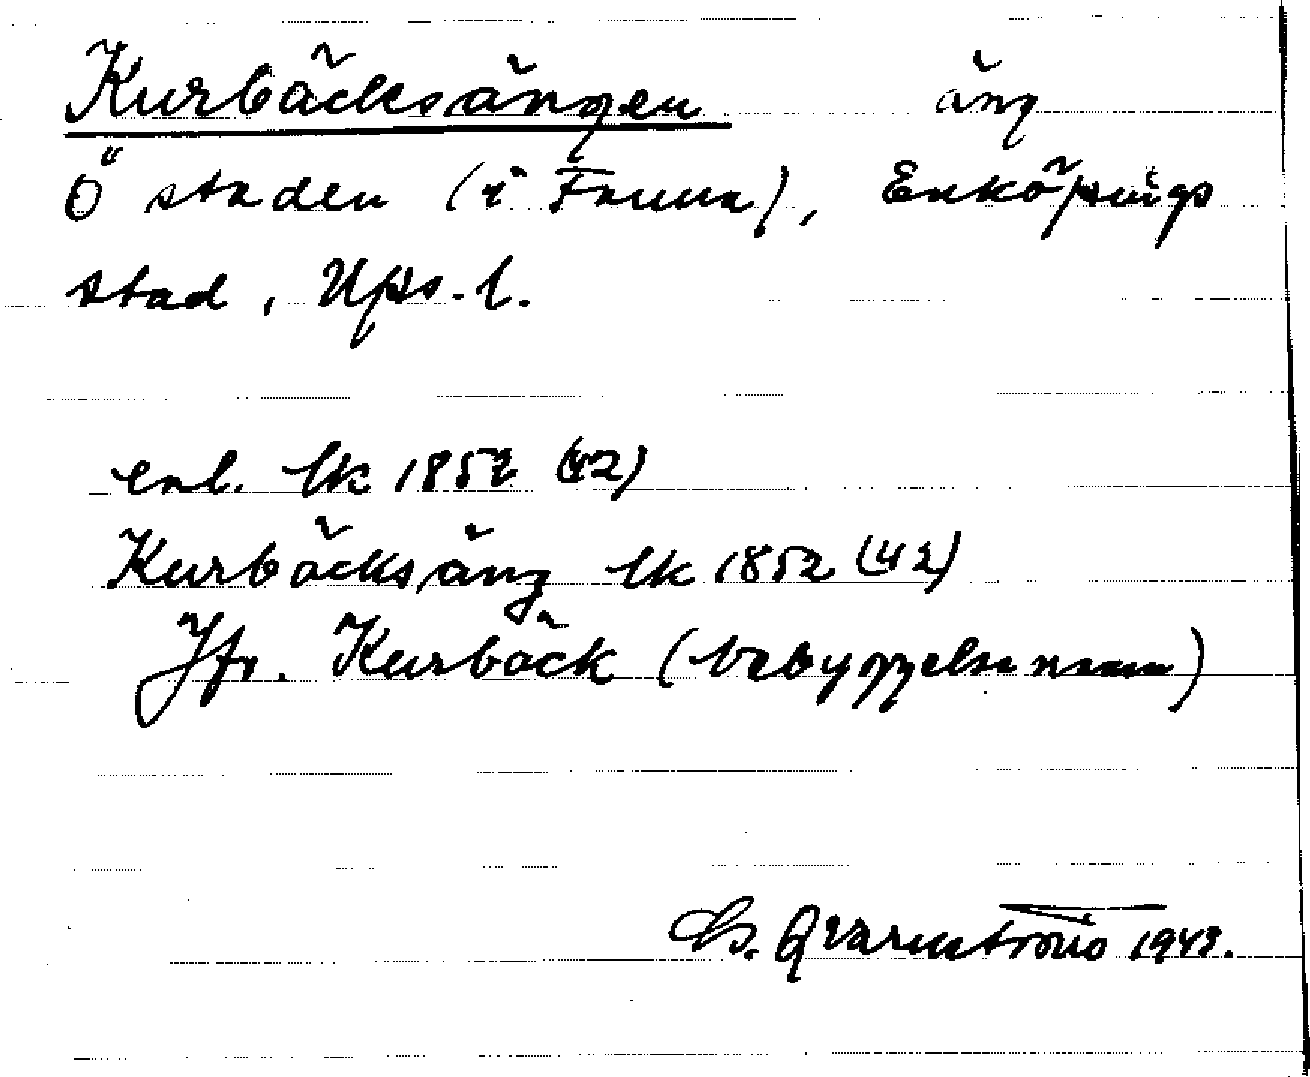 Kurbäcksängen äng
Ö staden (i Fanna), Enköpings
stad, Ups. l.
enl. lk 1852 (42)
Kurbäcksäng lk 1852 (42)
Jfr. Kurbäck (bebyggelsenamn)
Qvarnström 1943.